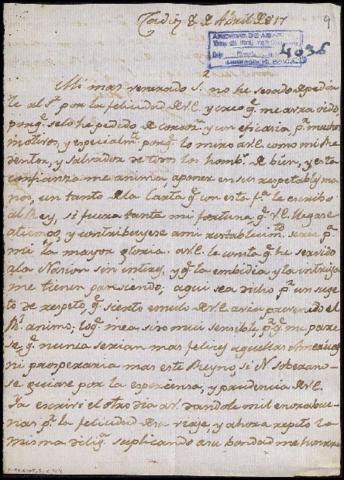 Cadiz 8 de Abril de 817
9
ARCHIVO DE
4035
Mi mas venerado S.r no he sesado de pedir
le al S.r por la felicidad de V.E. y creo q.e me a oido
porq.e selo he pedido de corazon, y con eficacia p.r muchos
motivos, y especialm.te porq.e lo miro a V.E. como mi Re
dentor, y Salvador de todos los homb.s de bien, y esta
confianza me anima, a poner en sus respetables ma
nos, un tanto de la Carta q.e con esta f.ha le escribo
al Rey, si fuera tanta mi fortuna q.e V.E. llegase
a tiempo, y contribuyese a mi restablecim.to seria p.a
mi la mayor gloria. a V.E. le consta q.e he servido
a la Nacion sin interes, y q.e la embidia y la intriga
me tienen padesiendo; aqui se a dicho p.r un suge
to de respeto, q.e siento emulo de V.E. avia prevenido el
R.l animo, lo q.e me a sido mui sensible p.r q.e me pare
se q.e nunca serian mas felices aquellas Americas
ni prosperaria mas este Reyno, si N. Soberano
se guiase por la esperiensa, y prudencia de V.E.
Ya escrivi el otro dia a V.E. dandole mil enorabue
nas p.r la felicidad de su viaje, y ahora repito la
misma dilig.a suplicando a su bondad me